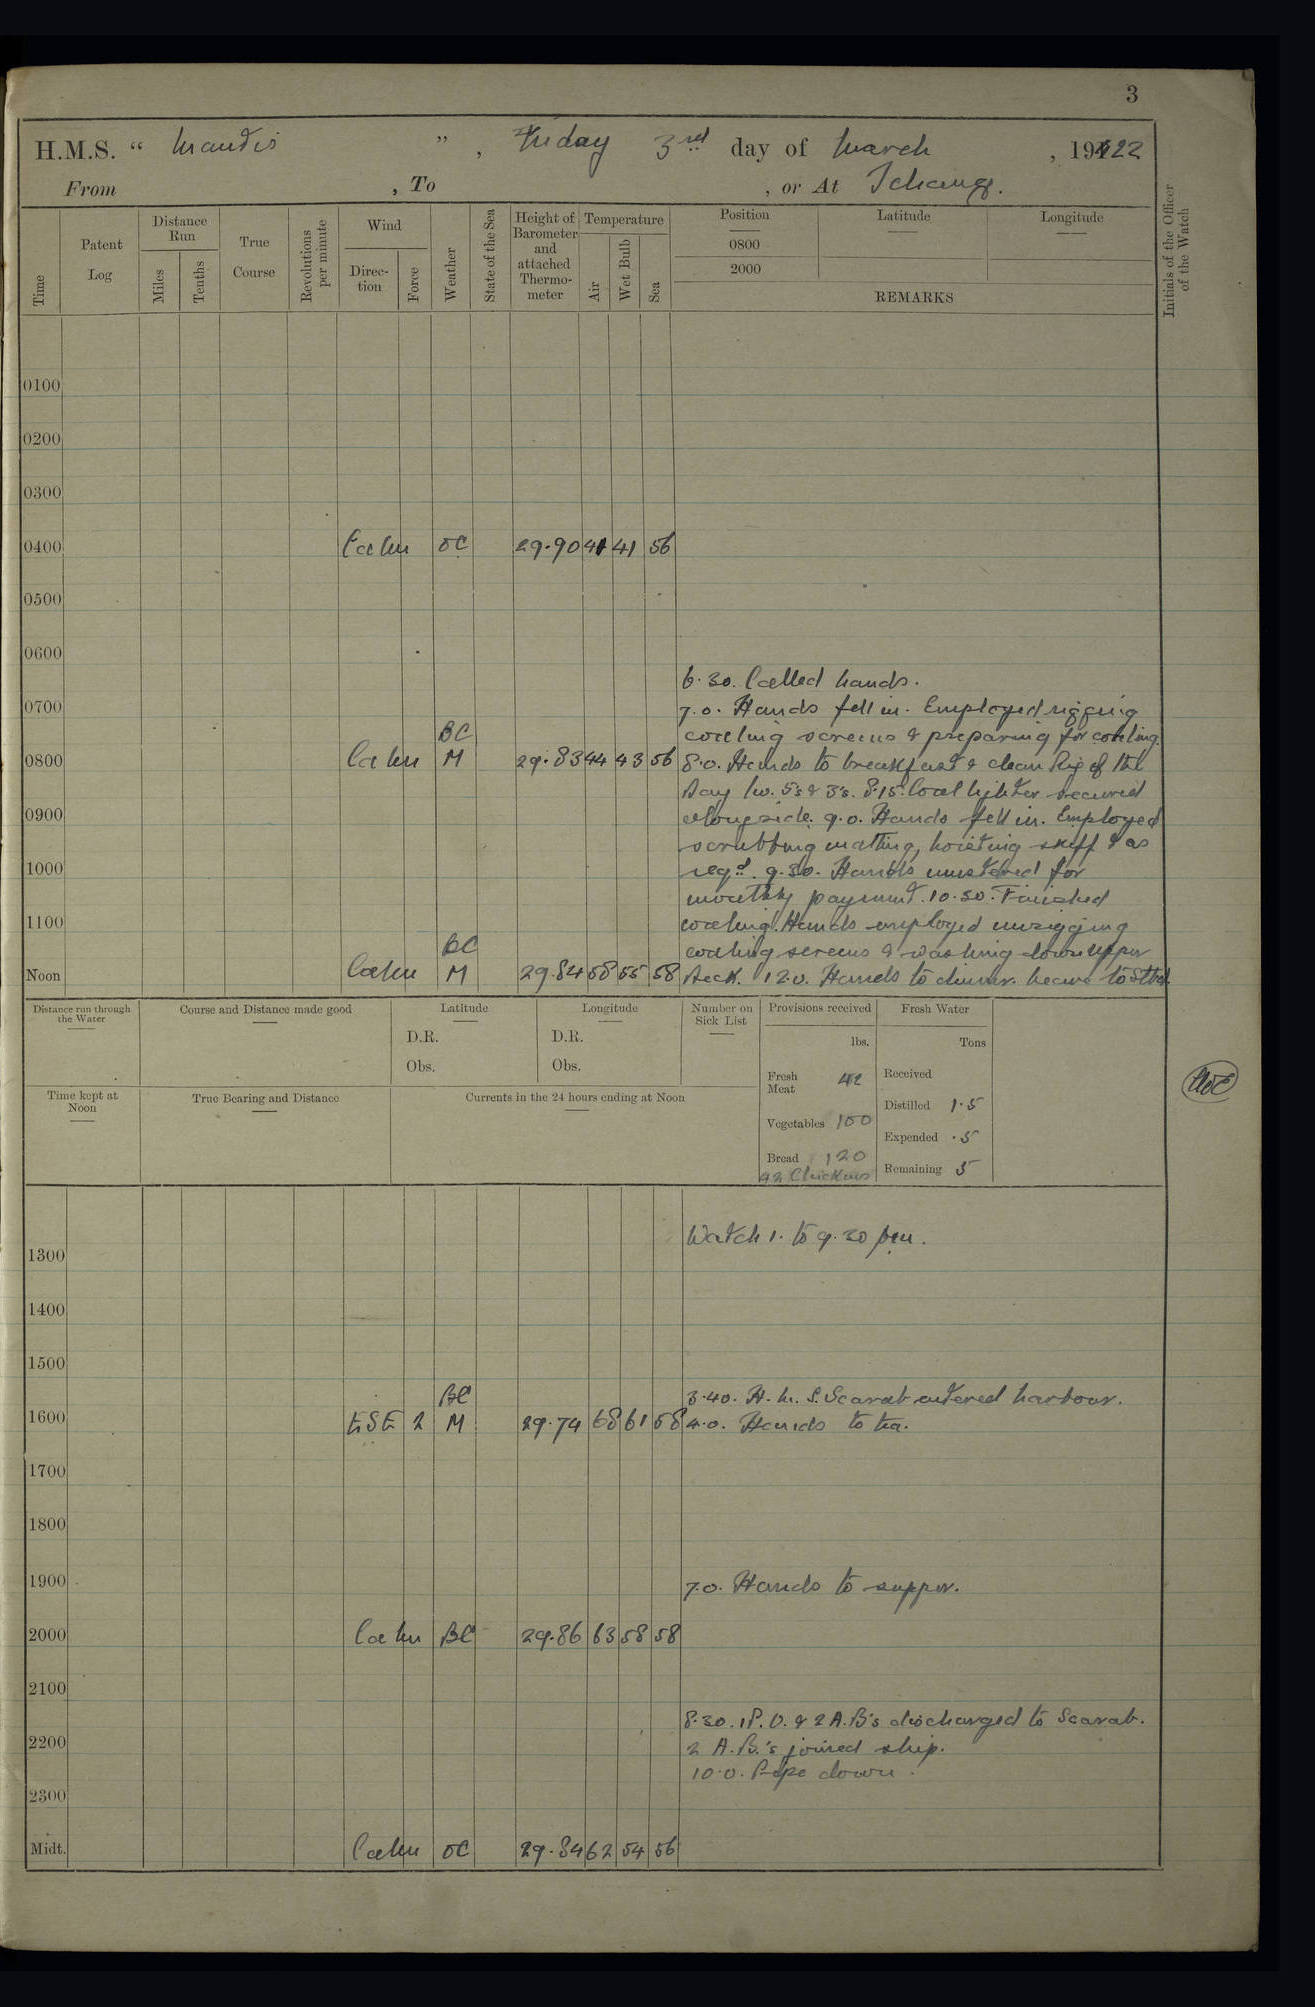 3
H.M.S. “ Mantis ” , Friday 3rd day of March , 1922
From , To , or At Ichang.
Time
Patent Log
Distance Run
Miles
Tenths
True Course
Revolutions per minute
Wind
Direc- tion
Force
Weather
State of the Sea
Height of Barometer and attached Thermo- meter
Temperature
Air
Wet Bulb
Sea
Position Latitude Longitude
0800
2000
REMARKS
Initials of the Officer of the Watch
0100
0200
0300
0400 Calm OC 29.90 41 41 56
0500
0600
6.30. Called hands.
0700 7.0. Hands fell in. Employed rigging
BC coaling screens & preparing for coaling.
0800 Calm M 29.83 44 43 56 8.0. Hands to breakfast & clean Rig of the
Day No. 5s & 3's. 8.15. Coal lighter secured
0900 alongside. 9.0. Hands fell in. Employed
scrubbing matting, hoisting skiff & as
1000 reqd. 9.30. Hands mustered for
monthly payment. 10.30. Finished
1100 coaling. Hands employed unrigging
BC coaling screens & washing down upper
Noon Calm M 29.84 58 55 58 deck. 12.0. Hands to dinner. Leave to Stbd.
Distance run through the Water
Course and Distance made good
Latitude
D.R.
Obs.
Longitude
D.R.
Obs.
Number on Sick List
Provisions received
lbs.
Fresh Meat 42
Vegetables 100
Bread 120
92 Chickens
Fresh Water
Tons
Received
Distilled 1.5
Expended .5
Remaining 5
Time kept at Noon
True Bearing and Distance
Currents in the 24 hours ending at Noon
Watch 1. to 9.30 pm.
1300
1400
1500
BC 3.40. H.M.S. Scarab entered harbour.
1600 ESE 2 M 29.74 68 61 58 4.0. Hands to tea.
1700
1800
1900 7.0. Hands to supper.
2000 Calm BC 29.86 63 58 58
2100
8.30. 1 P.O. & 2 A.B's discharged to Scarab.
2200 2 A.B.'s joined ship.
10.0. Pipe down.
2300
Midt. Calm OC 29.84 62 54 56